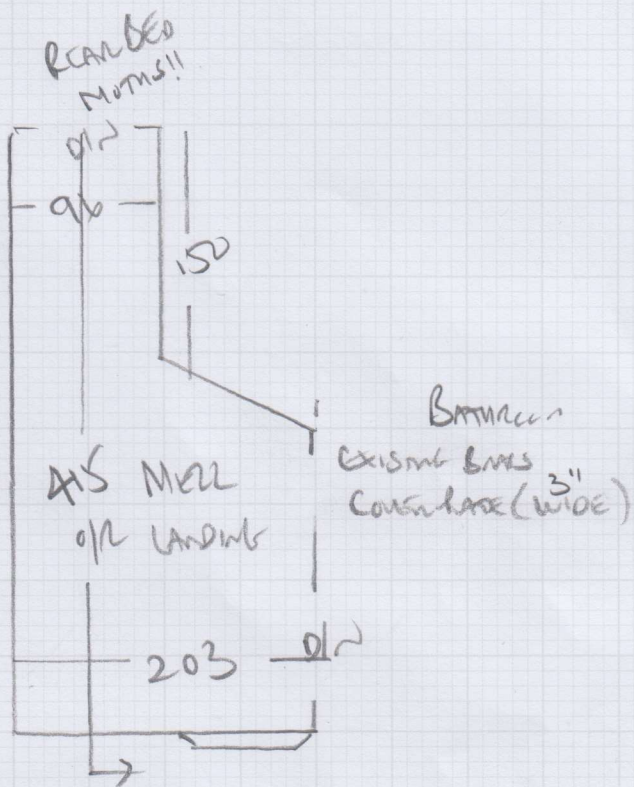 REAR BED
MOTHS!!
D/N
96
150
BATHROOM
EXISTING BRASS
COVER PLATE (3" WIDE)
415
O/R LANDING
203 D/N